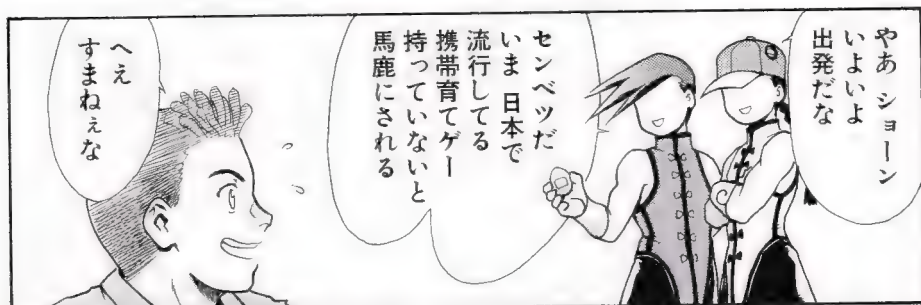 やあ ショーン
いよいよ
出発だな
センベツだ
いま 日本で
流行してる
携帯育てゲー
持っていないと
馬鹿にされる
へえ
すまねぇな